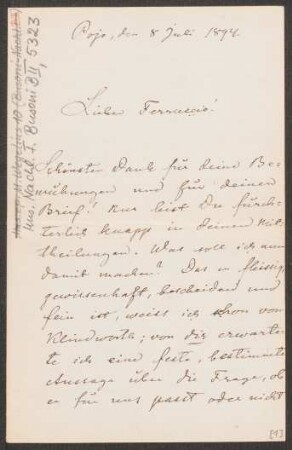 Pojo, den 8 Juli 1894.
Lieber Ferruccio!
Schönsten Dank für deine Be-
mühungen und für deinen
Brief! Nur bist Du fürch-
terlich knapp in deinen Mit-
theilungen. Was soll ich nun
damit machen? Das er fleissig,
gewissenhaft, bescheiden und
fein ist, weiss ich schon von
Klindworth; von dir erwarte-
te ich eine feste, bestimmte
Aussage über die Frage, ob
er für uns passt oder nicht
Mus. Nachl. F. Busoni B II, 5323
[1]